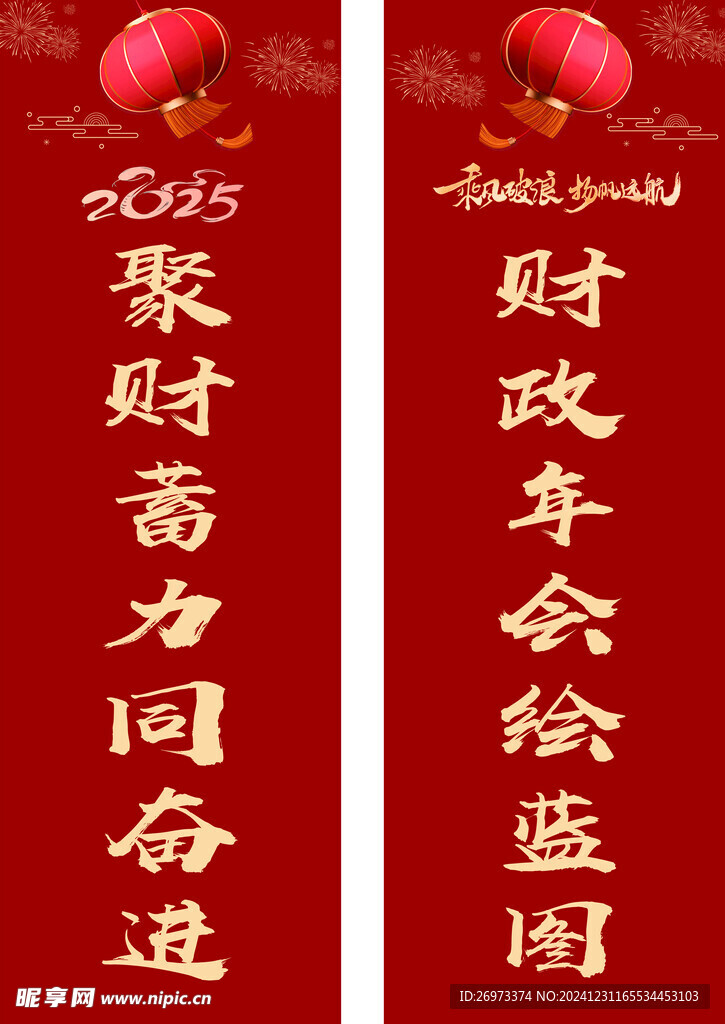 2025
聚财蓄力同奋进
乘风破浪 扬帆远航
财政年会绘蓝图
昵享网 www.nipic.cn
ID:26973374 NO:20241231165534453103